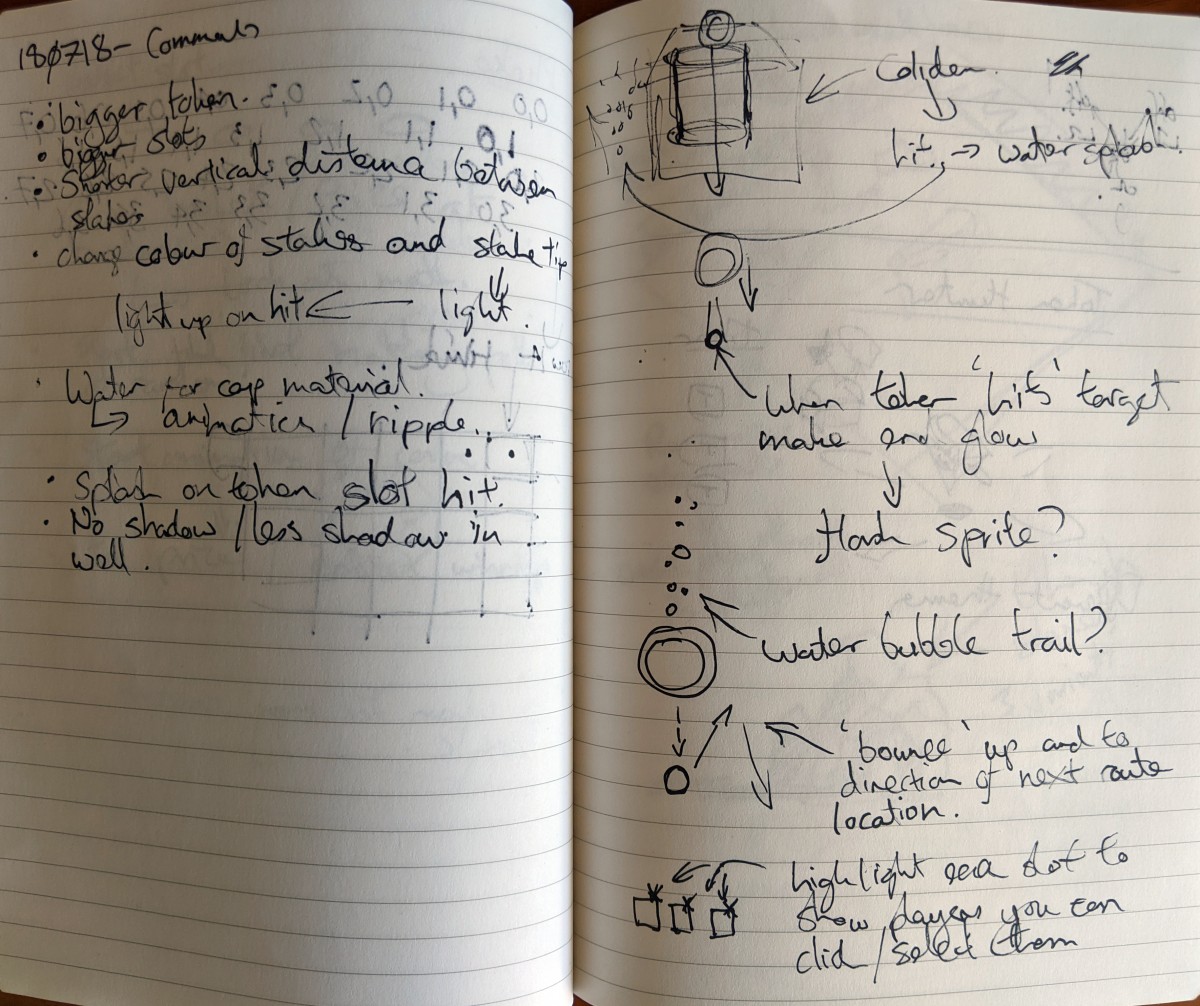 180718 - Comments
• bigger token.
• bigger slots
• Shorter vertical distance between
stakes
• change colour of stakes and stake tip
light up on hit ← light.
• Water for cap material.
↳ animation / ripple.
• Splash on token slot hit.
• No shadow / less shadow in
well.
Colider.
hit. → water splash.
When token 'hits' target
make end glow
Hash sprite?
Water bubble trail?
'bounce' up and to
direction of next route
location.
highlight each slot to
show players you can
click / select them